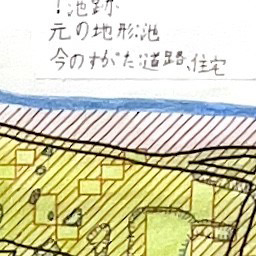 池跡
元の地形 池
今のすがた 道路、住宅